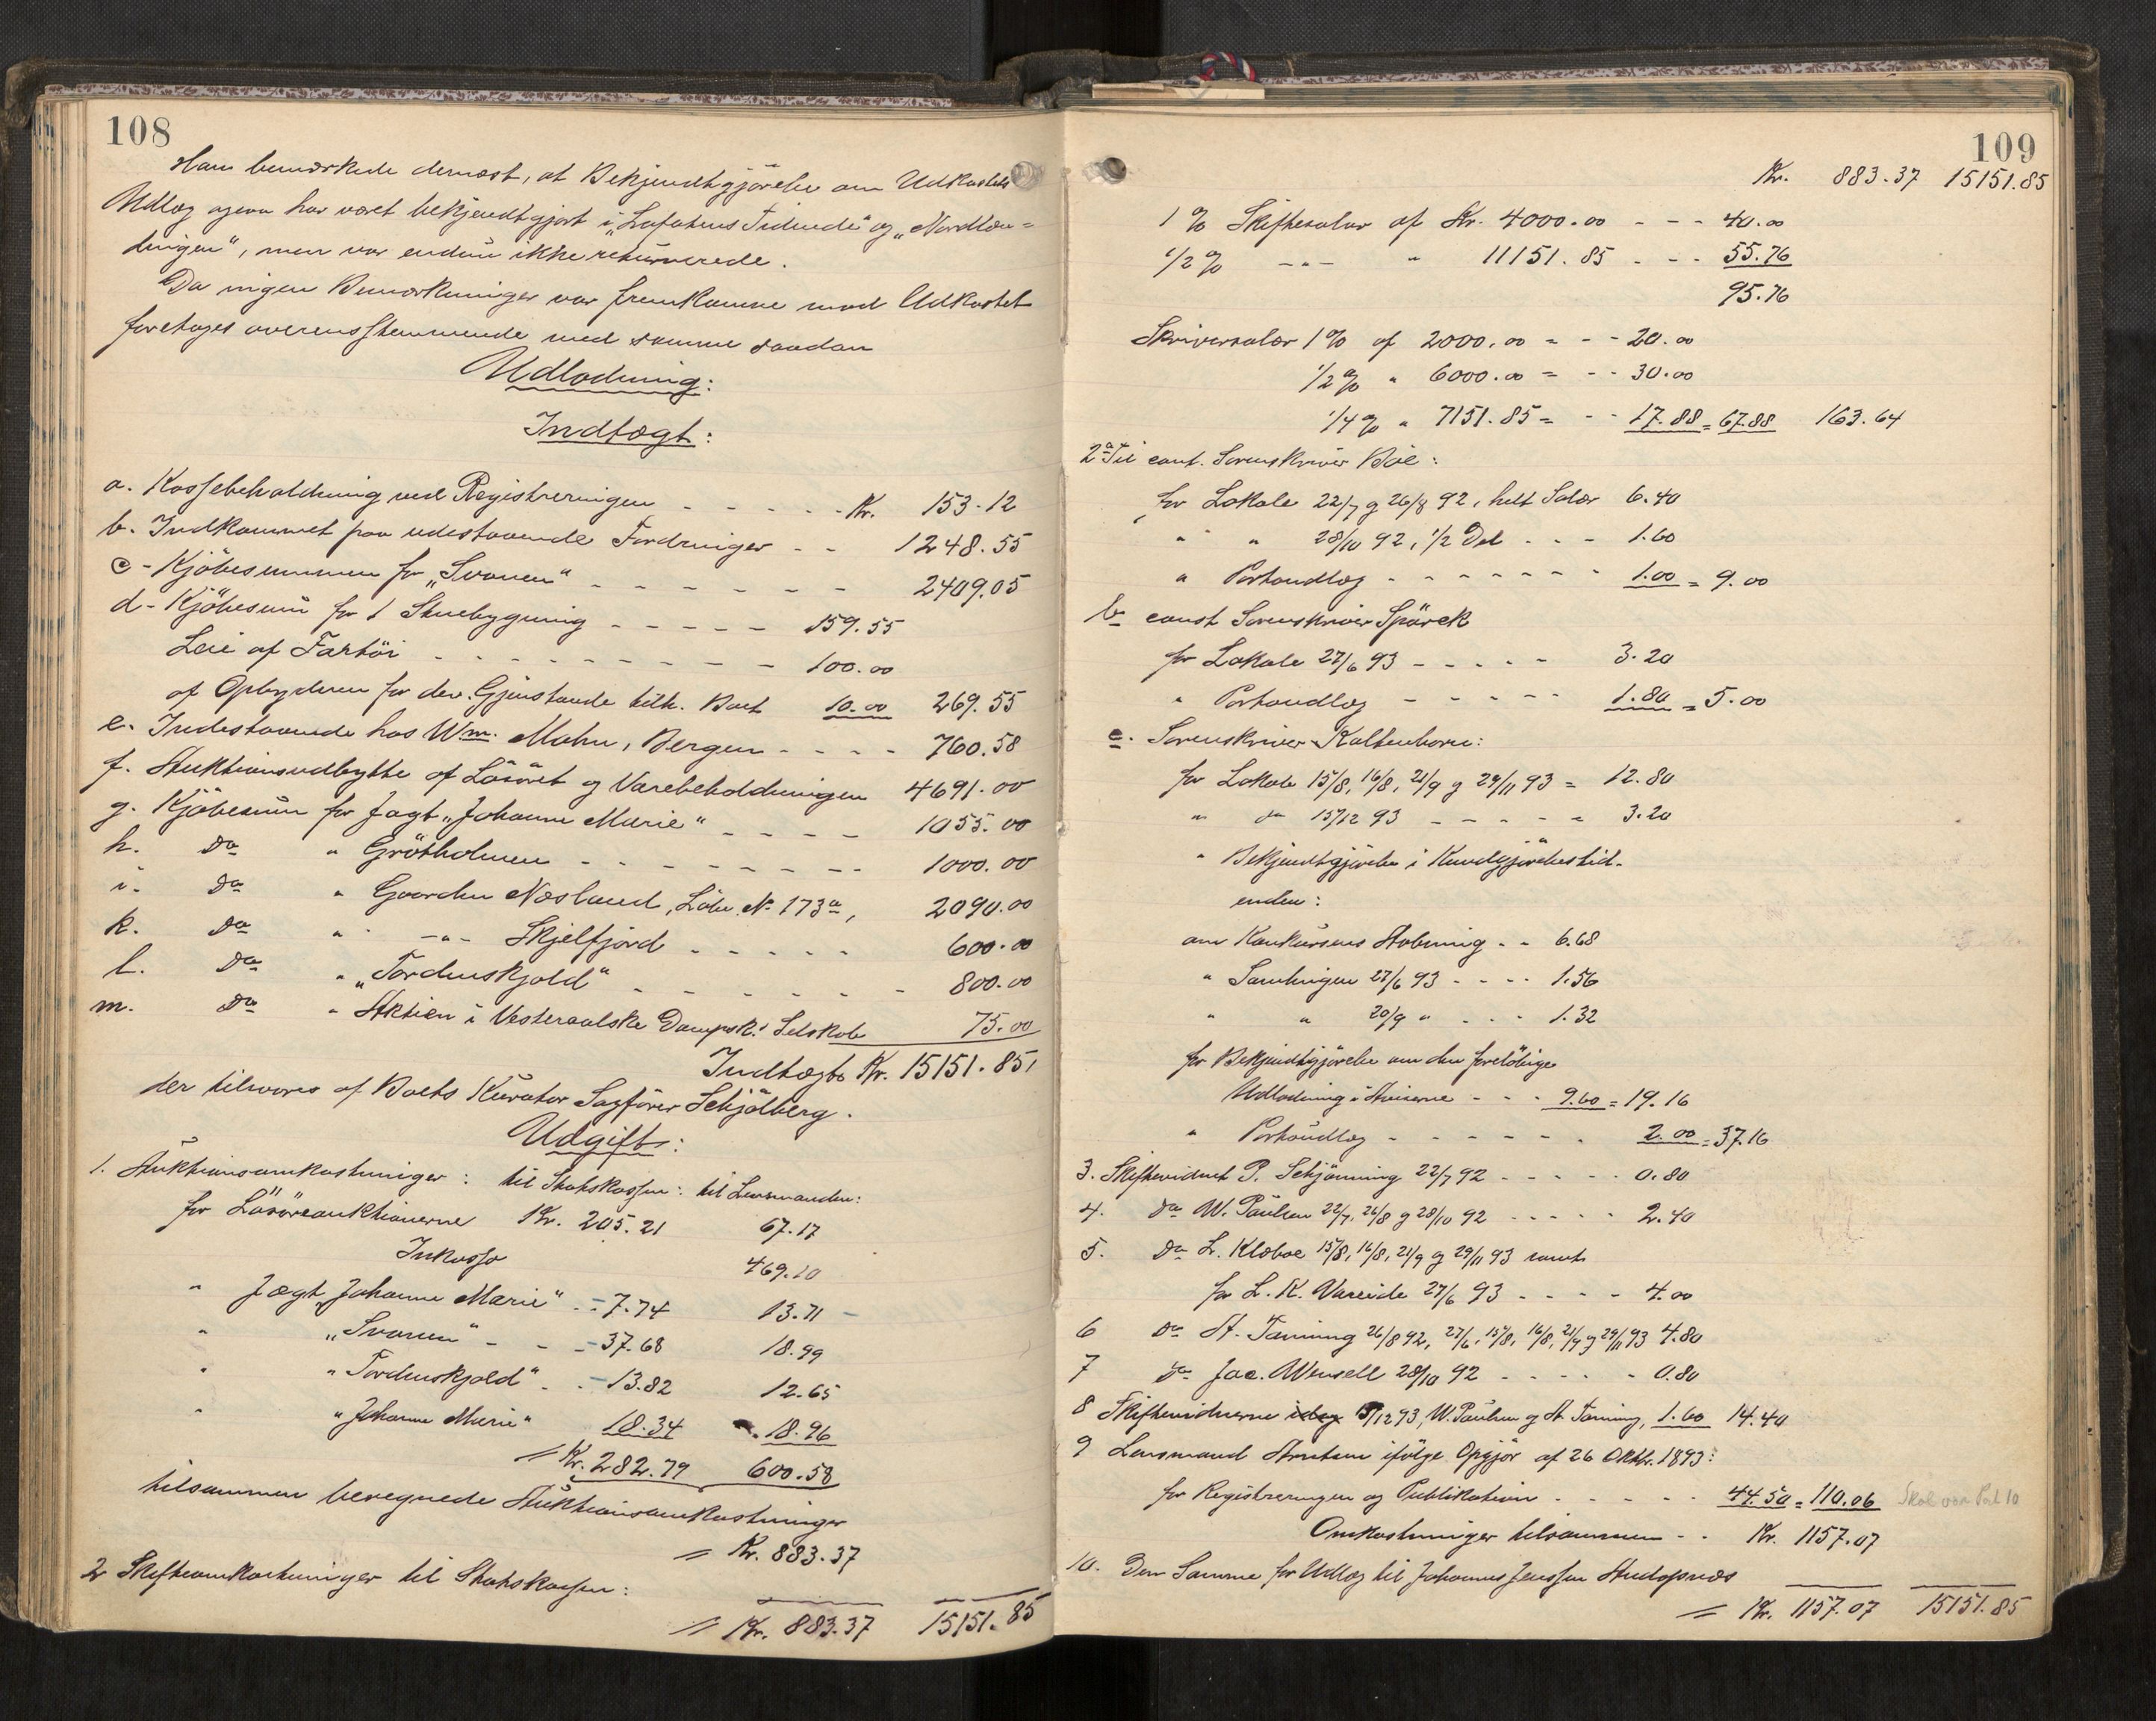 108
Han bemærkede dernæst, at Bekjendtgjørelse om Udkastets
Udlæg ogsaa har været bekjendtgjort i „Lofotens Tidende" og „Nordlæn=
dingen", men var endnu ikke returnerede.
Da ingen Bemærkninger var fremkomne mod Udkastet
foretoges overensstemmende med samme saadan
Udlodning:
Indtægt:
a. Kassebeholdning ved Registreringen - - - - - Kr. 153.12
b. Indkommet paa udestaaende Fordringer - - 1248.55
c - Kjöbesummen for „Svanen" - - - - - - 2409.05
d - Kjöbesum for 1 Stuebygning - - - - - 159.55
Leie af Fartöi - - - - - - - - - - 100.00
af Opbyderen for dev. Gjenstande tilh. Boet 10.00 269.55
e. Indestaaende hos Wm. Mohn, Bergen - - - - 760.58
f. Auktionsudbytte af Lösöret og Varebeholdningen 4691.00
g. Kjöbesum for Jagt „Johanne Marie" - - - - 1055.00
h. Do " Grötholmen - - - - - - - - 1000.00
i. Do " Gaarden Næsland, Löbe No 173a, 2090.00
k. Do " -"- Skjelfjord - - - - - 600.00
l. Do " „Tordenskjold" - - - - - - 800.00
m. Do " Aktien i Vesteraalske Dampsk. Selskab 75.00
Indtægt Kr. 15151.85,
der tilsvares af Boets Kurator Sagfører Schjölberg.
Udgift:
1. Auktionsomkostninger: til Statskassen: til Lensmanden:
for Lösöreauktionerne Kr. 205.21 67.17
Inkasso 469.10
" Jægt „Johanne Marie" - - 7.74 13.71 -
" „Svanen" - - - 37.68 18.99
" „Tordenskjold" - - 13.82 12.65
" „Johanne Marie" 18.34 18.96
= Kr. 282.79 600.58
tilsammen beregnede Auktionsomkostninger
= Kr. 883.37
2 Skifteomkostninger til Statskassen:
= Kr. 883.37 15151.85
109
Kr. 883.37 15151.85
1 % Skiftesalær af Kr. 4000.00 - - - 40.00
1/2 % -"- " 11151.85 - - - 55.76
95.76
Skriversalær 1 % af 2000.00 = - - 20.00
1/2 % " 6000.00 = - - 30.00
1/4 % " 7151.85 = - - 17.88 = 67.88 163.64
2a Til const. Sorenskriver Böe:
for Lokale 22/7 og 26/8 92, helt Salær 6.40
" " 28/10 92, 1/2 Del - - - 1.60
" Portoudlæg - - - - - - - 1.00 = 9.00
b const Sorenskriver Spörck
for Lokale 27/6 93 - - - - - 3.20
" Portoudlæg - - - - - 1.80 = 5.00
c. Sorenskriver Kaltenborn:
for Lokale 15/8, 16/8, 21/9 og 29/11 93 = 12.80
" do 15/12 93 - - - - - 3.20
" Bekjendtgjørelse i Kundgjørelsestid-
enden:
om Konkursens Aabning - - 6.68
" Samlingen 27/6 93 - - - - 1.56
" " 20/9 " - - - 1.32
for Bekjendtgjørelse om den foreløbige
Udlodning i Aviserne - - - 9.60 = 19.16
" Portoudlæg - - - - - - 2.00 = 37.16
3. Skiftevidnet P. Schjönning 22/7 92 - - - - - 0.80
4. do W. Paulsen 22/7, 26/8 og 28/10 92 - - - - - 2.40
5. do L. Klæboe 15/8, 16/8, 21/9 og 29/11 93 samt
for L. K. Vareide 27/6 93 - - - - 4.00
6 do A. Tanning 26/8 92, 27/6, 15/8, 16/8, 21/9 og 29/11 93 4.80
7 do Jac. Wensell 28/10 92 - - - - - 0.80
8 Skiftevidnerne 15/12 93, W. Paulsen og A. Tanning, 1.60 14.40
9 Lensmand Arntsen ifølge Opgjør af 26 Oktbr. 1893:
for Registreringen og Publikation - - - - - 44.50 = 110.06 Skal være Post 10
Omkostninger tilsammen - - Kr. 1157.07
10. Den Samme for Udlæg til Johannes Jenssen
= Kr. 1157.07 15151.85